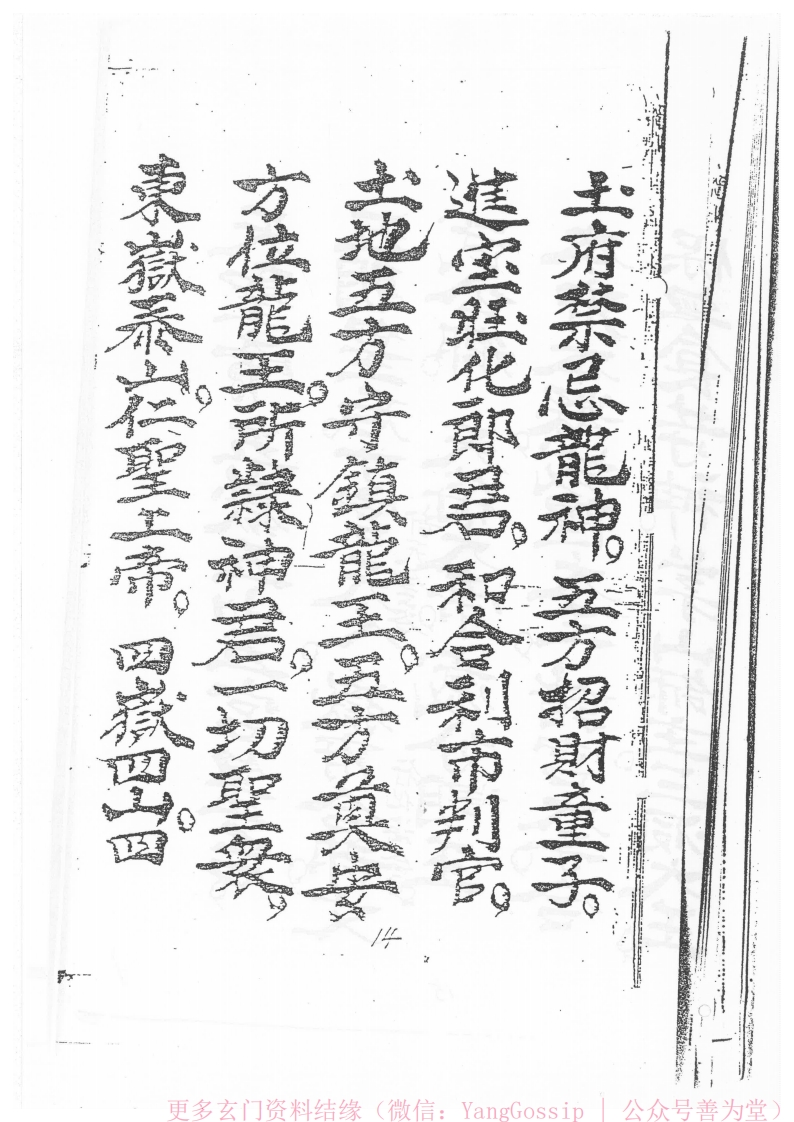 土府禁忌龍神。五方招財童子。
進宝旺化郎君。和合利市判官。
土地五方守鎮龍王。五方奠安
方位龍王。所隸神君。一切聖衆。
東嶽泰山仁聖上帝。四嶽四山四
14
更多玄门资料结缘（微信：YangGossip | 公众号善为堂）